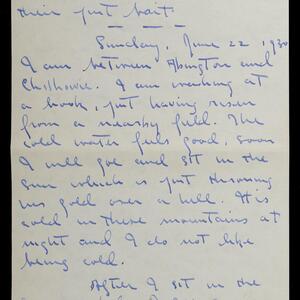 their just bait.
Sunday, June 22, 1930
I am between Abington and
Chilhowie. I am washing at
a brook, just having risen
from a nearby field. The
cold water feels good, soon
I will go and sit in the
sun which is just throwing
its gold over a hill. It is
cold in these mountains at
night and I do not like
being cold.
After I sit in the